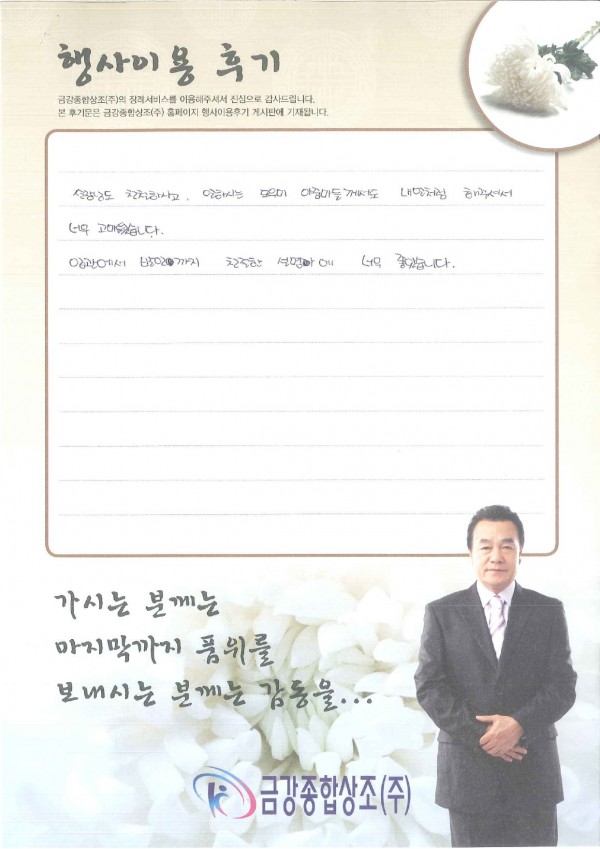 행사이용 후기
금강종합상조(주)의 장례서비스를 이용해주셔서 진심으로 감사드립니다.
본 후기문은 금강종합상조(주) 홈페이지 행사이용후기 게시판에 기재됩니다.
친절하시고, 일하시는 도우미 아줌마들께서도 내일처럼 해주셔서
너무 고마웠습니다.
입관에서 발인까지 친절한 설명아에 너무 좋았습니다.
가시는 분께는
마지막까지 품위를
보내시는 분께는 감동을...
금강종합상조(주)